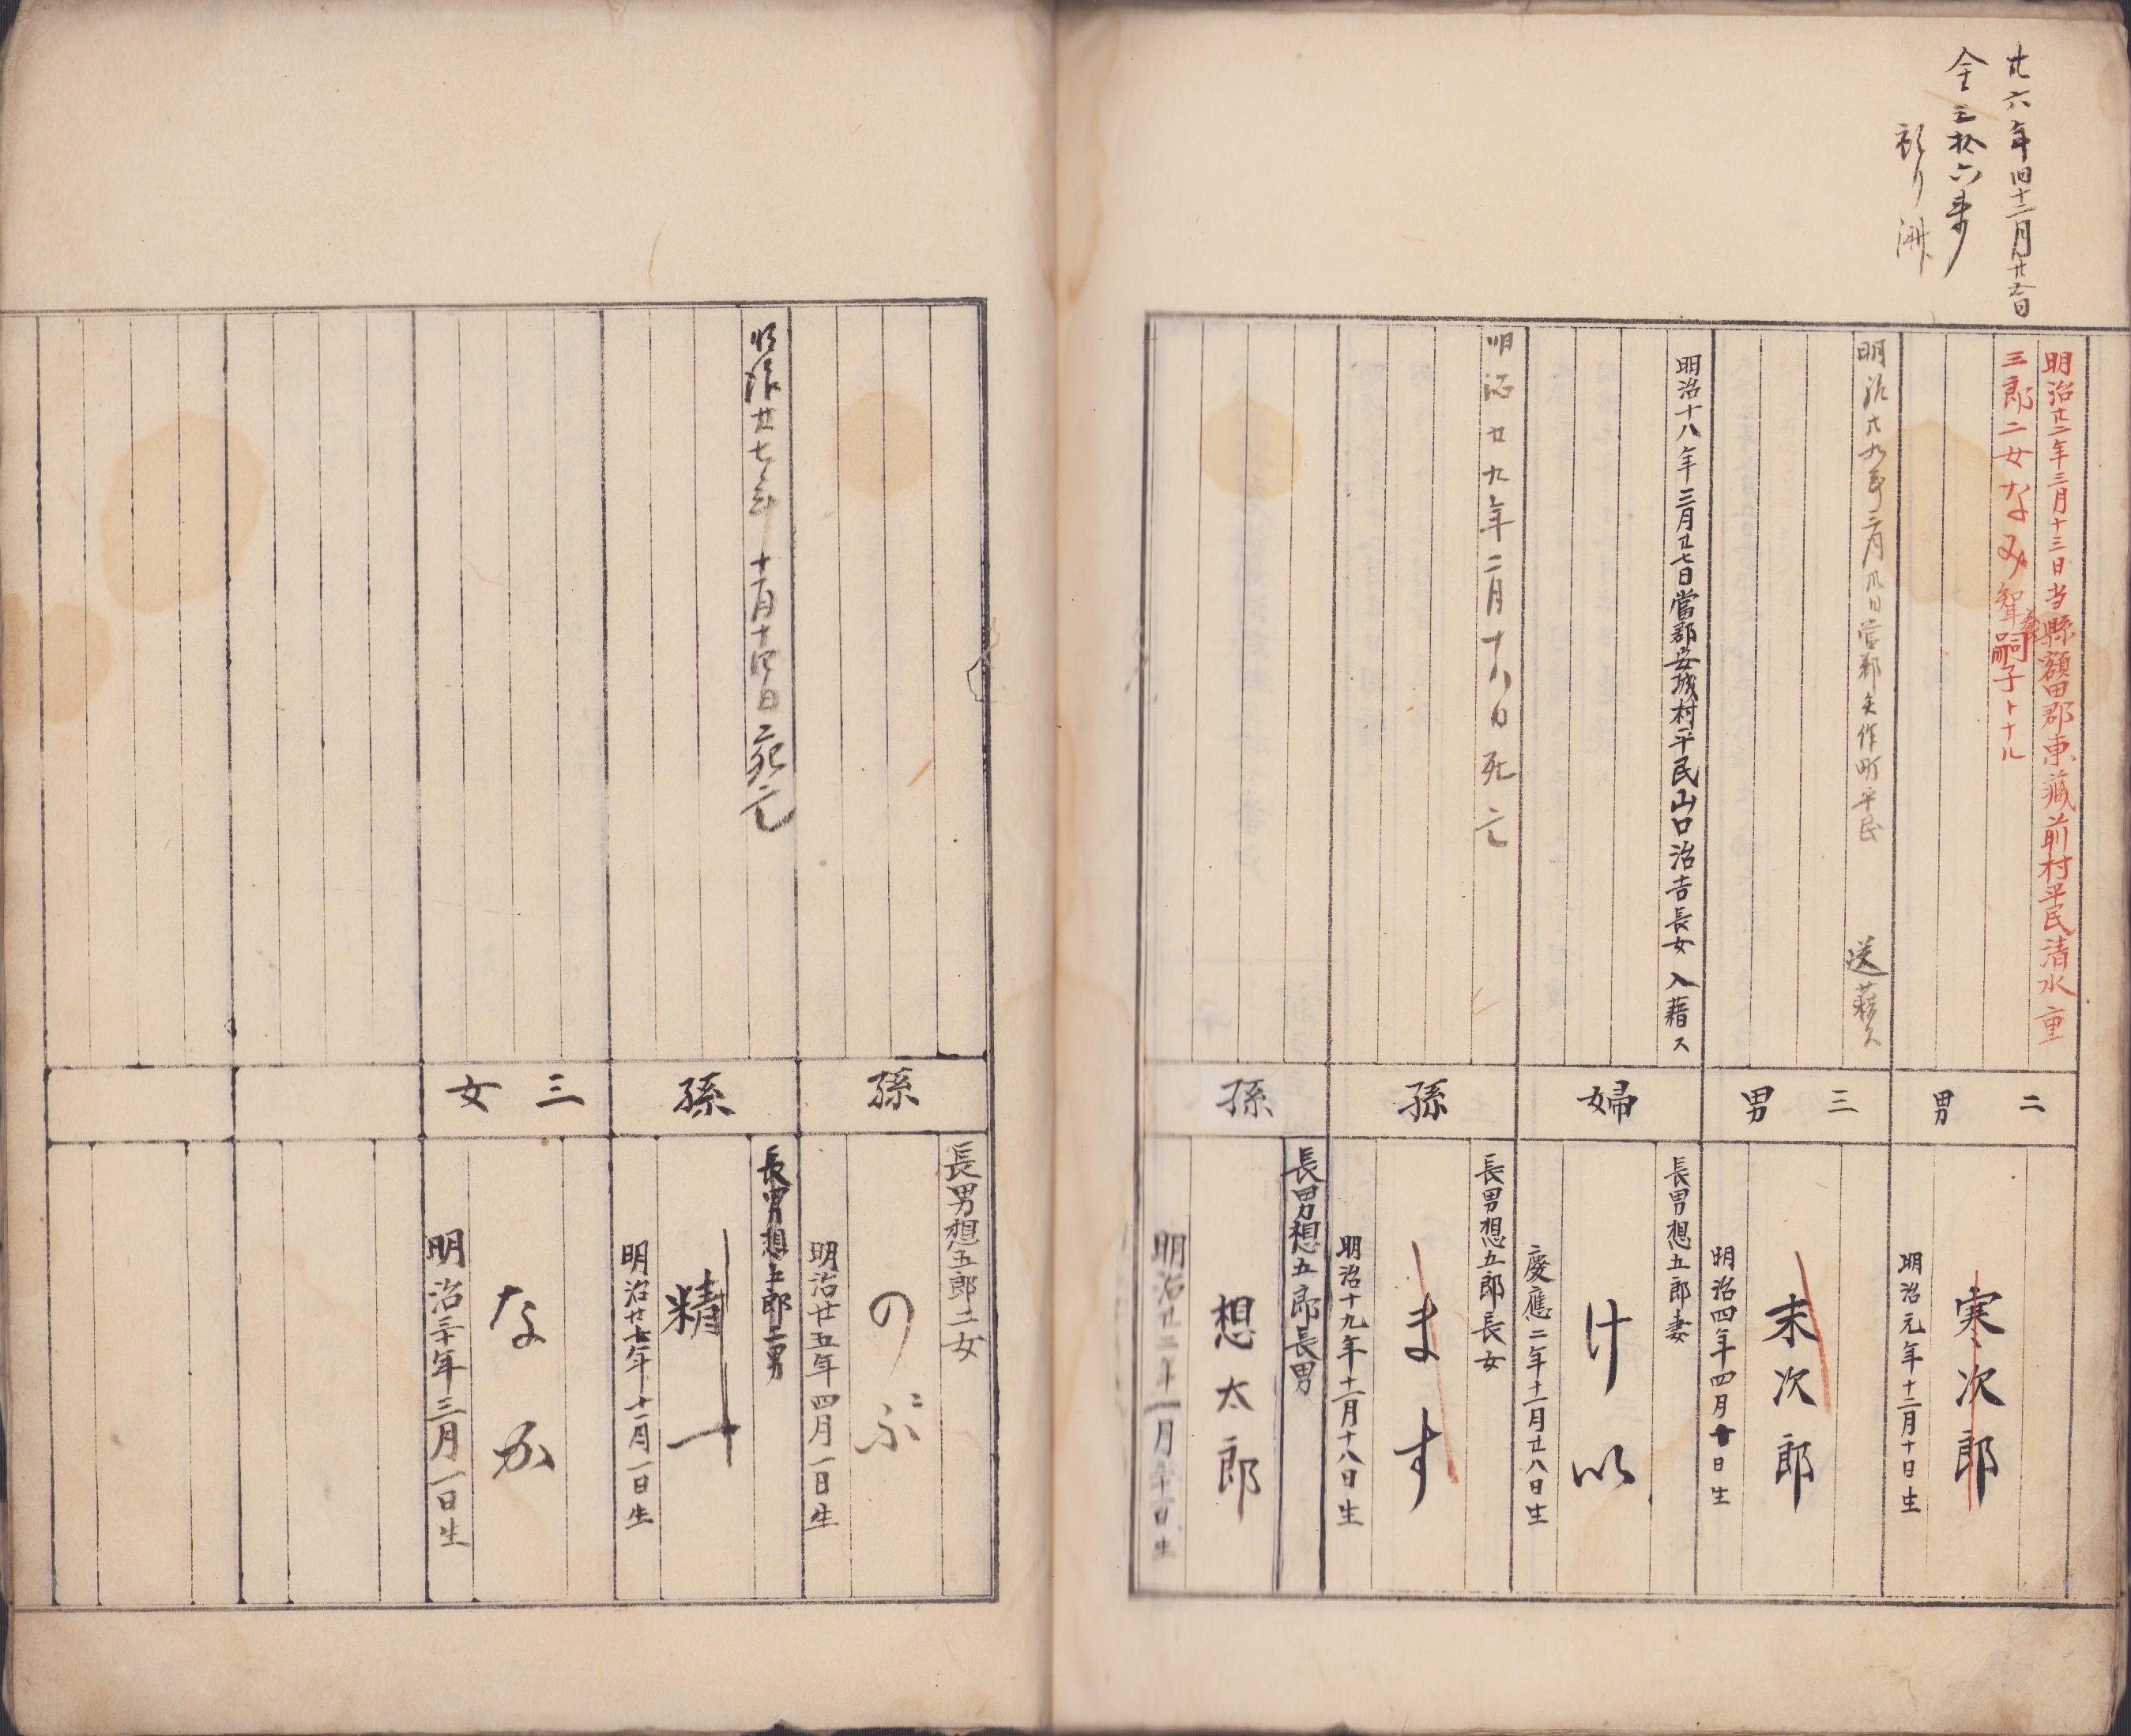 廿六年旧十二月廿五日
仝三拾六季
祢り済
明治廿二年三月十三日当縣額田郡東藏前村平民清水重
三郎二女なみ聟養嗣子トナル
二男
寒次郎
明治元年十二月十日生
明治廿九年三月廿日當郡矢作町平民
送籍ス
三男
末次郎
明治四年四月十日生
明治十八年三月廿七日當郡安城村平民山口治吉長女入籍ス
婦
長男想五郎妻
けい
慶應二年十一月廿八日生
明治廿九年二月十八日死亡
孫
長男想五郎長女
ます
明治十九年十二月十八日生
孫
長男想五郎長男
想太郎
明治廿二年一月 日生
孫
長男想五郎二女
のぶ
明治廿五年四月一日生
明治廿七年十一月十四日死亡
孫
長男想五郎二男
精一
明治廿七年十一月一日生
三女
なか
明治三十年三月一日生